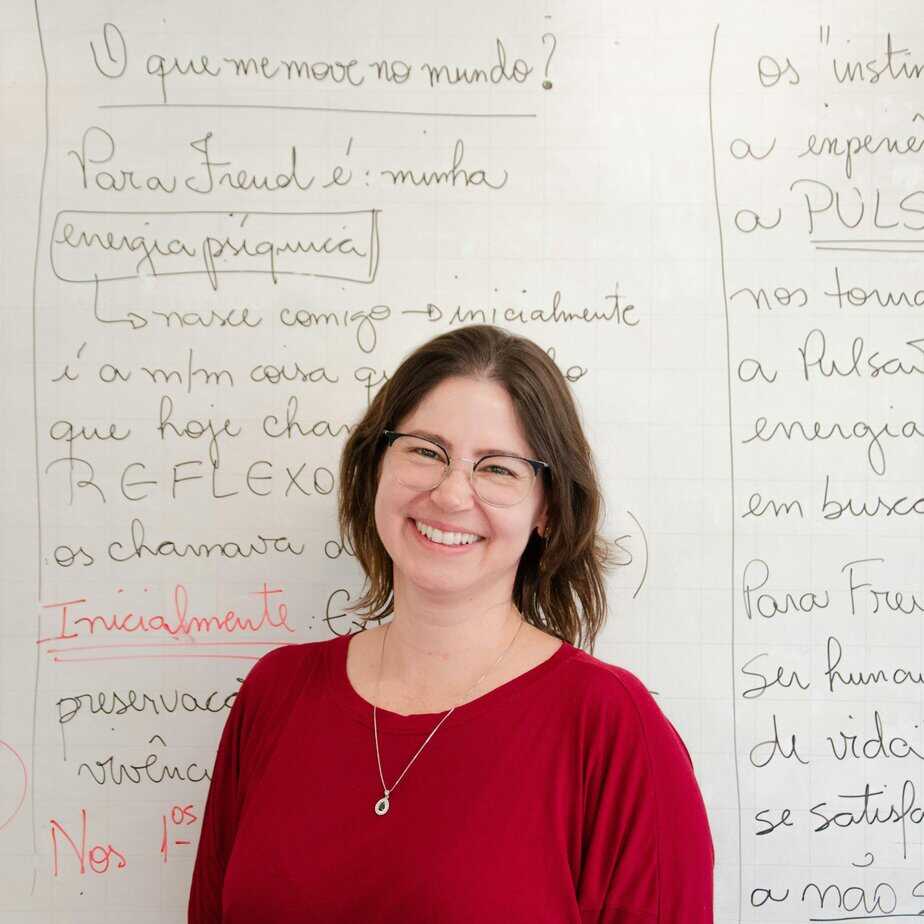 O que me move no mundo?
Para Freud é: minha
energia psíquica
↳ nasce comigo → inicialmente
é a m/m coisa
que hoje
REFLEXO
os chamava
Inicialmente:
preservaç
vivênci
Nos 1os
os "instin
a experiê
a PULS
nos torna
a Pulsã
energia
em busca
Para Freu
Ser huma
de vida
se satisf
a não